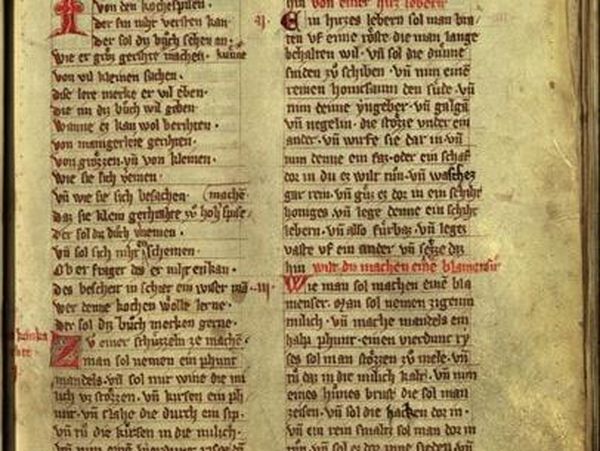 von den kochespisen.
der sin niht versten kan
der sol diz bůch sehen an.
wie er gůt gerihte machen künne
von vil kleinen sachen.
dise lere merke er vil eben.
die im diz bůch wil geben
wanne ez kan wol berihten.
von manigerleie gerihten.
von grozzen. vñ von kleinen.
wie sie sich vereinen.
vñ wie sie sich besachen. machē.
daz sie klein gerihte zů hoh spise
der sol diz bůch vernemen.
vñ sol sich niht schemen.
Ob er frager des er niht enkan.
des bescheit in schier ein wiser mā
wer denne kochen wolle lerne.
der sol diz bůch merken gerne.
Zv einer schüzzeln ze machē.
man sol nemen ein phunt
mandels. vñ sol mit wine die mi
lich vz stozzen. vñ kirsen ein ph
unt. vñ slahe die durch ein sip.
vñ tů die kirsen in die milich.
hin von einer hirz lebern
Ein hirzes lebern sol man bra
ten vf eime röste die man lange
behalten wil. vñ sol die dünne
sniden zů schiben. vñ nim einē
reinen honicsaum den süde vñ
nim denne yngeber. vñ galgā
vñ negelin. die stozze vnder ein
ander. vñ wirfe sie dar in. vñ
nim denne ein faz. oder ein schaf
dor in du ez wilt tůn. vñ waschez
gar rein. vñ güz ez dor in ein schiht
honiges. vñ lege denne ein schiht
lebern. vñ also fürbaz. vñ legez
vaste vf ein ander vñ setze diz
hin wilt du machen eine blamenser
Wie man sol machen eine bla
menser. Man sol nemen zigenin
milich. vñ mache mandels ein
halp phunt. einen vierdunc ry
ses sol man stozzen zů mele. vñ
tů daz in die milich kalt. vñ nim
eines hůnes brust die sol man
zeisen. vñ sol die hacken dor in.
vñ ein rein smaltz sol man dor in
tůn. vñ sol ez dor inne sieden vñ